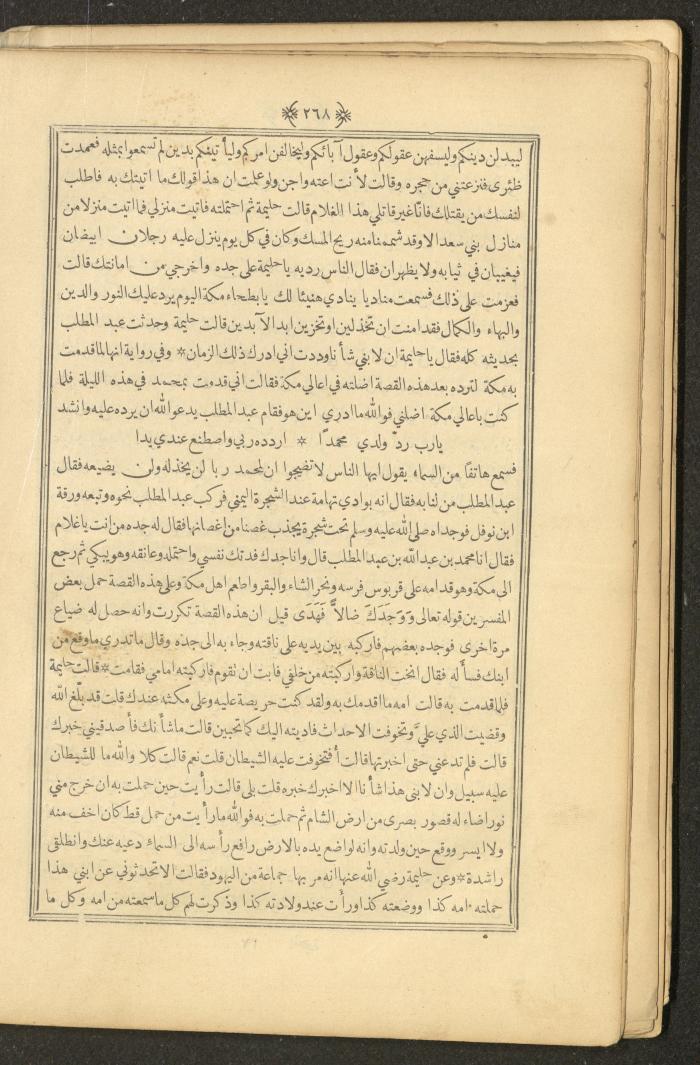 ٢٦٨
ليبدلن دينكم وليسفهن عقولكم وعقول آبائكم وليخالفن امركم وليأتينكم بدين لم تسمعوا بمثله فعمدت
ظئرى فنزعتني من حجره وقالت لأنت اعته واجن ولو علمت ان هذا قولك ما اتيتك به فاطلب
لنفسك من يقتلك فانا غير قاتلي هذا الغلام قالت حليمة ثم احتملته فاتيت منزلي فما اتيت منزلا من
منازل بني سعد الا وقد شممنا منه ريح المسك وكان في كل يوم ينزل عليه رجلان ابيضان
فيغيبان في ثيابه ولا يظهران فقال الناس رديه يا حليمة على جده واخرجي من امانتك قالت
فعزمت على ذلك فسمعت مناديا ينادي هنيئا لك يا بطحاء مكة اليوم يرد عليك النور والدين
والبهاء والكمال فقد امنت ان تخذلين او تخزين ابد الآبدين قالت حليمة وحدثت عبد المطلب
بحديثه كله فقال يا حليمة ان لابني شأنا وددت اني ادرك ذلك الزمان * وفي رواية انها لما قدمت
به مكة لترده بعد هذه القصة اضلته في اعالي مكة فقالت اني قدمت بمحمد في هذه الليلة فلما
كنت باعالي مكة اضلني فوالله ما ادري اين هو فقام عبد المطلب يدعو الله ان يرده عليه وانشد
يا رب ردّ ولدي محمدًا * اردده ربي واصطنع عندي يدا
فسمع هاتفا من السماء يقول ايها الناس لا تضجوا ان لمحمد ربا لن يخذله ولن يضيعه فقال
عبد المطلب من لنا به فقال انه بوادي تهامة عند الشجرة اليمني فركب عبد المطلب نحوه وتبعه ورقة
ابن نوفل فوجداه صلى الله عليه وسلم تحت شجرة يجذب غصنا من اغصانها فقال له جده من انت يا غلام
فقال انا محمد بن عبد الله بن عبد المطلب قال وانا جدك فدتك نفسي واحتمله وعانقه وهو يبكي ثم رجع
الى مكة وهو قدامه على قربوس فرسه ونحر الشاء والبقر واطعم اهل مكة وعلى هذه القصة حمل بعض
المفسرين قوله تعالى وَوَجَدَكَ ضالاًّ فَهَدَى قيل ان هذه القصة تكررت وانه حصل له ضياع
مرة اخرى فوجده بعضهم فاركبه بين يديه على ناقته وجاء به الى جده وقال ما تدري ما وقع من
ابنك فسأله فقال انخت الناقة واركبته من خلفي فابت ان تقوم فاركبته امامي فقامت * قالت حليمة
فلما قدمت به قالت امه ما اقدمك به ولقد كنت حريصة عليه وعلى مكثه عندك قلت قد بلّغ الله
وقضيت الذي عليّ وتخوفت الاحداث فاديته اليك كما تحبين قالت ما شأنك فأصدقيني خبرك
قالت فلم تدعني حتى اخبرتها قالت أفتخوفت عليه الشيطان قلت نعم قالت كلا والله ما للشيطان
عليه سبيل وان لابني هذا شأنا الا اخبرك خبره قلت بلى قالت رأيت حين حملت به ان خرج مني
نور اضاء له قصور بصرى من ارض الشام ثم حملت به فوالله ما رأيت من حمل قط كان اخف منه
ولا ايسر ووقع حين ولدته وانه لواضع يده بالارض رافع رأسه الى السماء دعيه عنك وانطلقى
راشدة * وعن حليمة رضي الله عنها انه مر بها جماعة من اليهود فقالت الا تحدثوني عن ابني هذا
حملته امه كذا ووضعته كذا ورأت عند ولادته كذا وذكرت لهم كل ما سمعته من امه وكل ما